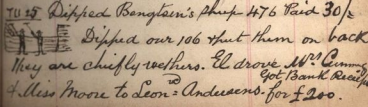 TU 25 Dipped Bengtsen's sheep 476 Paid 30/=
Dipped our 106 & put them on back
They are chiefly wethers. El drove Mrs Cumming
Got Bank Receipt
& Miss Moore to Leon Andersens. for £200.